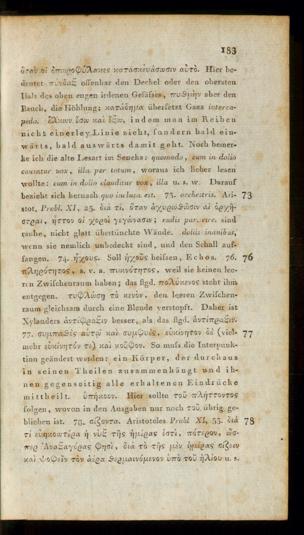 183
ὅταν οἱ ἐπιχοοφύλακες κατασκευάσωσιν αὐτό. Hier be-
deutet πύνδαξ offenbar den Deckel oder den obersten
Hals des oben engen irdenen Gefäſses, πυθμὴν aber den
Bauch, die Höhlung; κατάθημα übersetzt Gaza interca-
pedo. ἕλκων ἔσω καὶ ἔξω, indem man im Reihen
nicht einerley Linie zieht, sondern bald ein-
wärts, bald auswärts damit geht. Noch bemer-
ke ich die alte Lesart im Seneka: quomodo, cum in dolio
cavatur vox, illa per totum, woraus ich lieber lesen
wollte: cum in dolio clauditur vox, illa u. s. w. Darauf
bezieht sich hernach quo inclusa est. 73. orchestris. Ari- 73
stot. Probl. XI, 25. διὰ τί, ὅταν ἀχυρωθῶσιν αἱ ὀρχῆ-
στραι, ἧττον οἱ χοροὶ γεγώνασιν; rudis par. etc. sind
rauhe, nicht glatt übertünchte Wände. doliis inanibus,
wenn sie nemlich unbedeckt sind, und den Schall auf-
fangen. 74. ἤχους. Soll ἠχοῦς heiſsen, Echos. 76. 76
πληρότητος, s. v. a. πυκνότητος, weil sie keinen lee-
ren Zwischenraum haben; das flgd. πολύκενος steht ihm
entgegen. τυφλώσῃ τὸ κενὸν, den leeren Zwischen-
raum gleichsam durch eine Blende verstopft. Daher ist
Xylanders ἀντίφραξιν besser, als das flgd. ἀντίπραξιν.
77. συμπαθὲς αὑτῷ καὶ συμφυὲς, εὐκίνητον δὲ (viel- 77
mehr εὐκίνητόν τε) καὶ κοῦφον. So muſs die Interpunk-
tion geändert werden: ein Körper, der durchaus
in seinen Theilen zusammenhängt und ih-
nen gegenseitig alle erhaltenen Eindrücke
mittheilt. ὑπήκοον. Hier sollte τοῦ πλήττοντος
folgen, wovon in den Ausgaben nur noch τοῦ übrig ge-
blieben ist. 78. σίζοντα. Aristoteles Probl. XI, 33. διὰ 78
τί εὐηκοωτέρα ἡ νὺξ τῆς ἡμέρας ἐστί, πότερον, ὥσ-
περ Ἀναξαγόρας φησὶ, διὰ τὸ τῆς μὲν ἡμέρας σίζειν
καὶ ψοφεῖν τὸν ἀέρα θερμαινόμενον ὑπὸ τοῦ ἡλίου u. s.